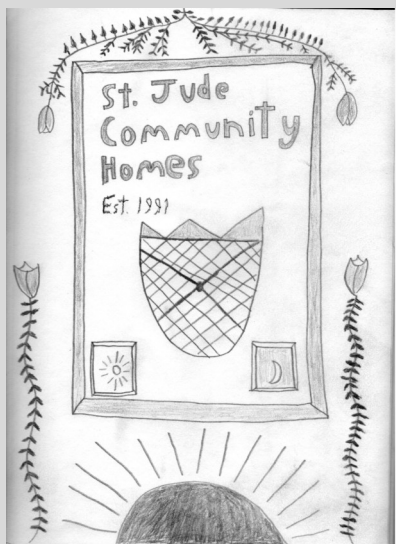 St. Jude
Community
Homes
Est. 1991